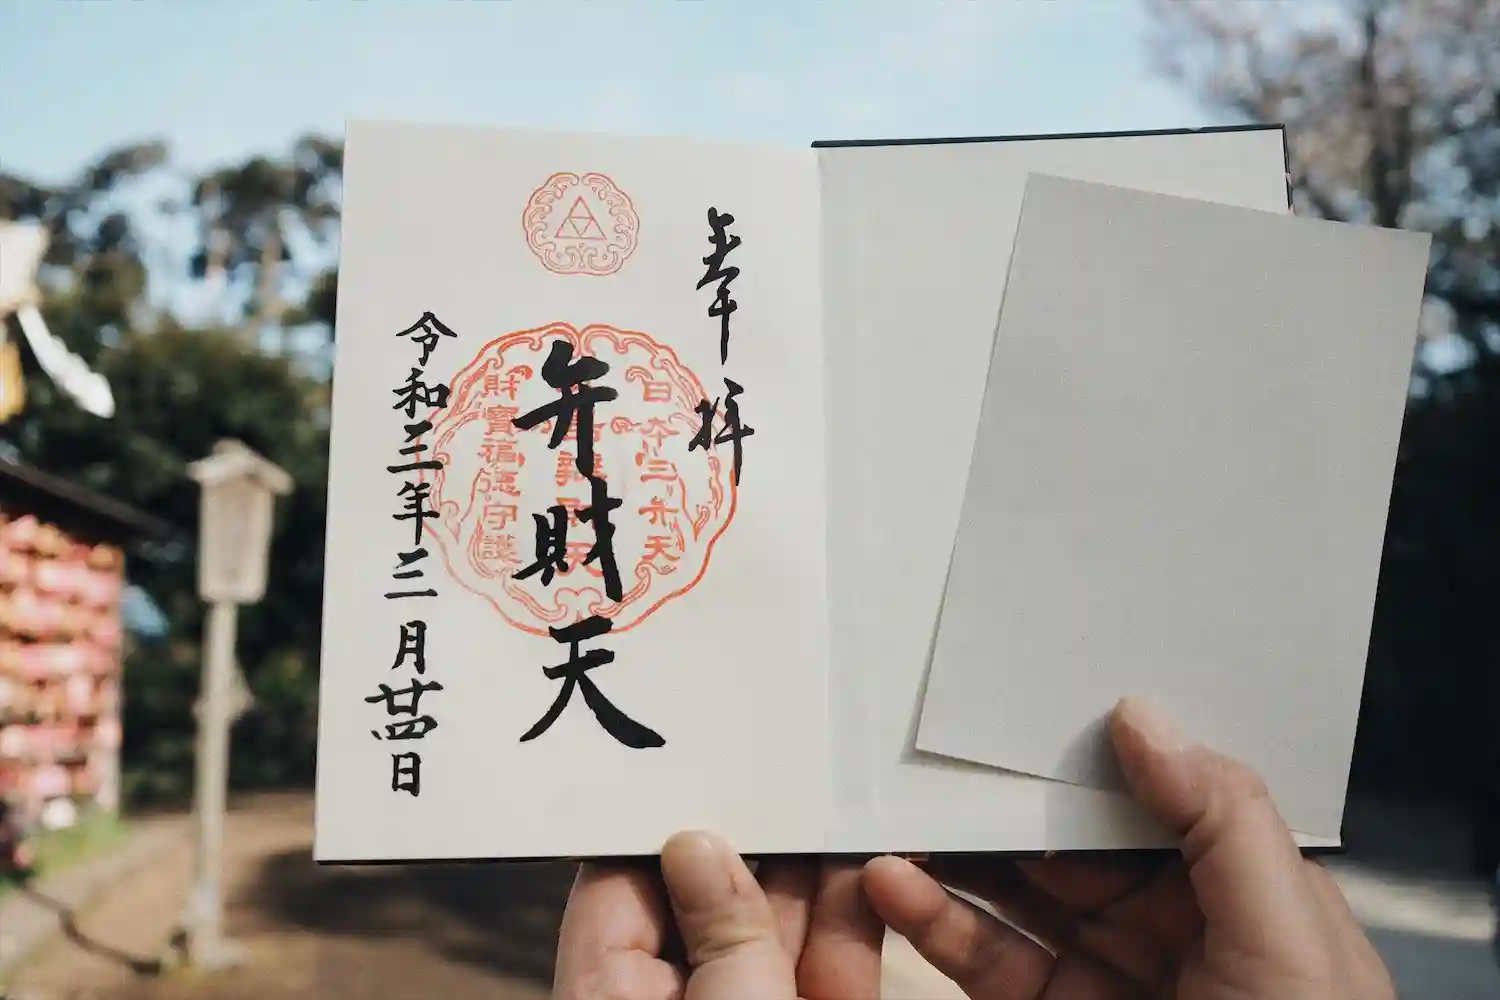 奉拝
日本三弁天
弁財天
財寶福徳守護
令和三年三月廿四日